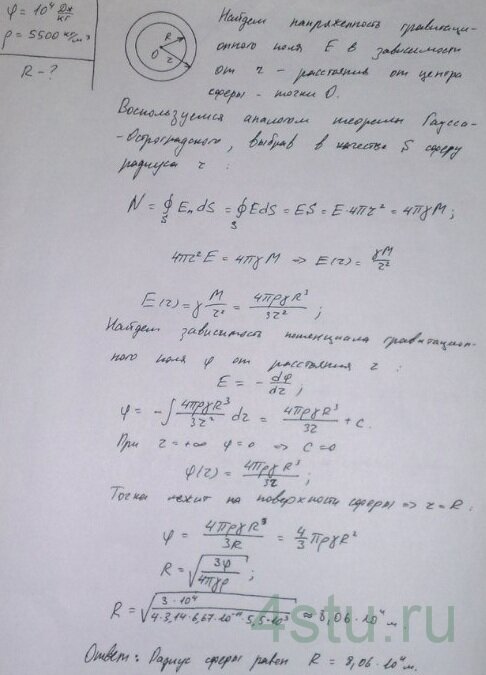 φ = 10⁴ Дж/кг
ρ = 5500 кг/м³
R - ?
R
O
r
Найдем напряженность гравитаци-
онного поля E в зависимости
от r - расстояния от центра
сферы - точки O.
Воспользуемся аналогом теоремы Гаусса-
-Остроградского, выбрав в качестве S сферу
радиуса r :
N = ∮ₛ EₙdS = ∮ₛ EdS = ES = E·4πr² = 4πγM;
4πr²E = 4πγM ⇒ E(r) = γM/r²
E(r) = γ M/r² = 4πργR³/3r² ;
Найдем зависимость потенциала гравитацион-
ного поля φ от расстояния r :
E = - dφ/dr ;
φ = -∫ 4πργR³/3r² dr = 4πργR³/3r + C.
При r = +∞ φ = 0 ⇒ C = 0
φ(r) = 4πργR³/3r ;
Точка лежит на поверхности сферы ⇒ r = R :
φ = 4πργR³/3R = 4/3 πργR²
R = √(3φ/4πγρ) ;
R = √(3·10⁴/4·3,14·6,67·10⁻¹¹·5,5·10³) ≈ 8,06·10⁴ м
Ответ: Радиус сферы равен R = 8,06·10⁴ м.
4stu.ru